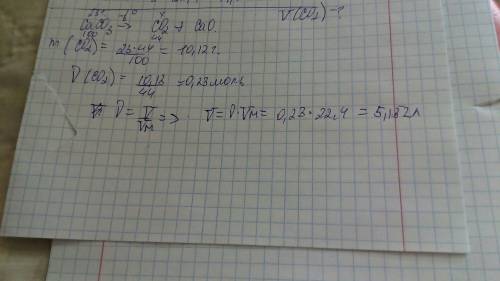 V(CO₂) - ?
CaCO₃ → CO₂ + CaO.
100 44
m(CO₂) = 23·44/100 = 10,12г.
ν(CO₂) = 10,12/44 = 0,23 моль
ν = V/Vм => V = ν·Vм = 0,23·22,4 = 5,152л